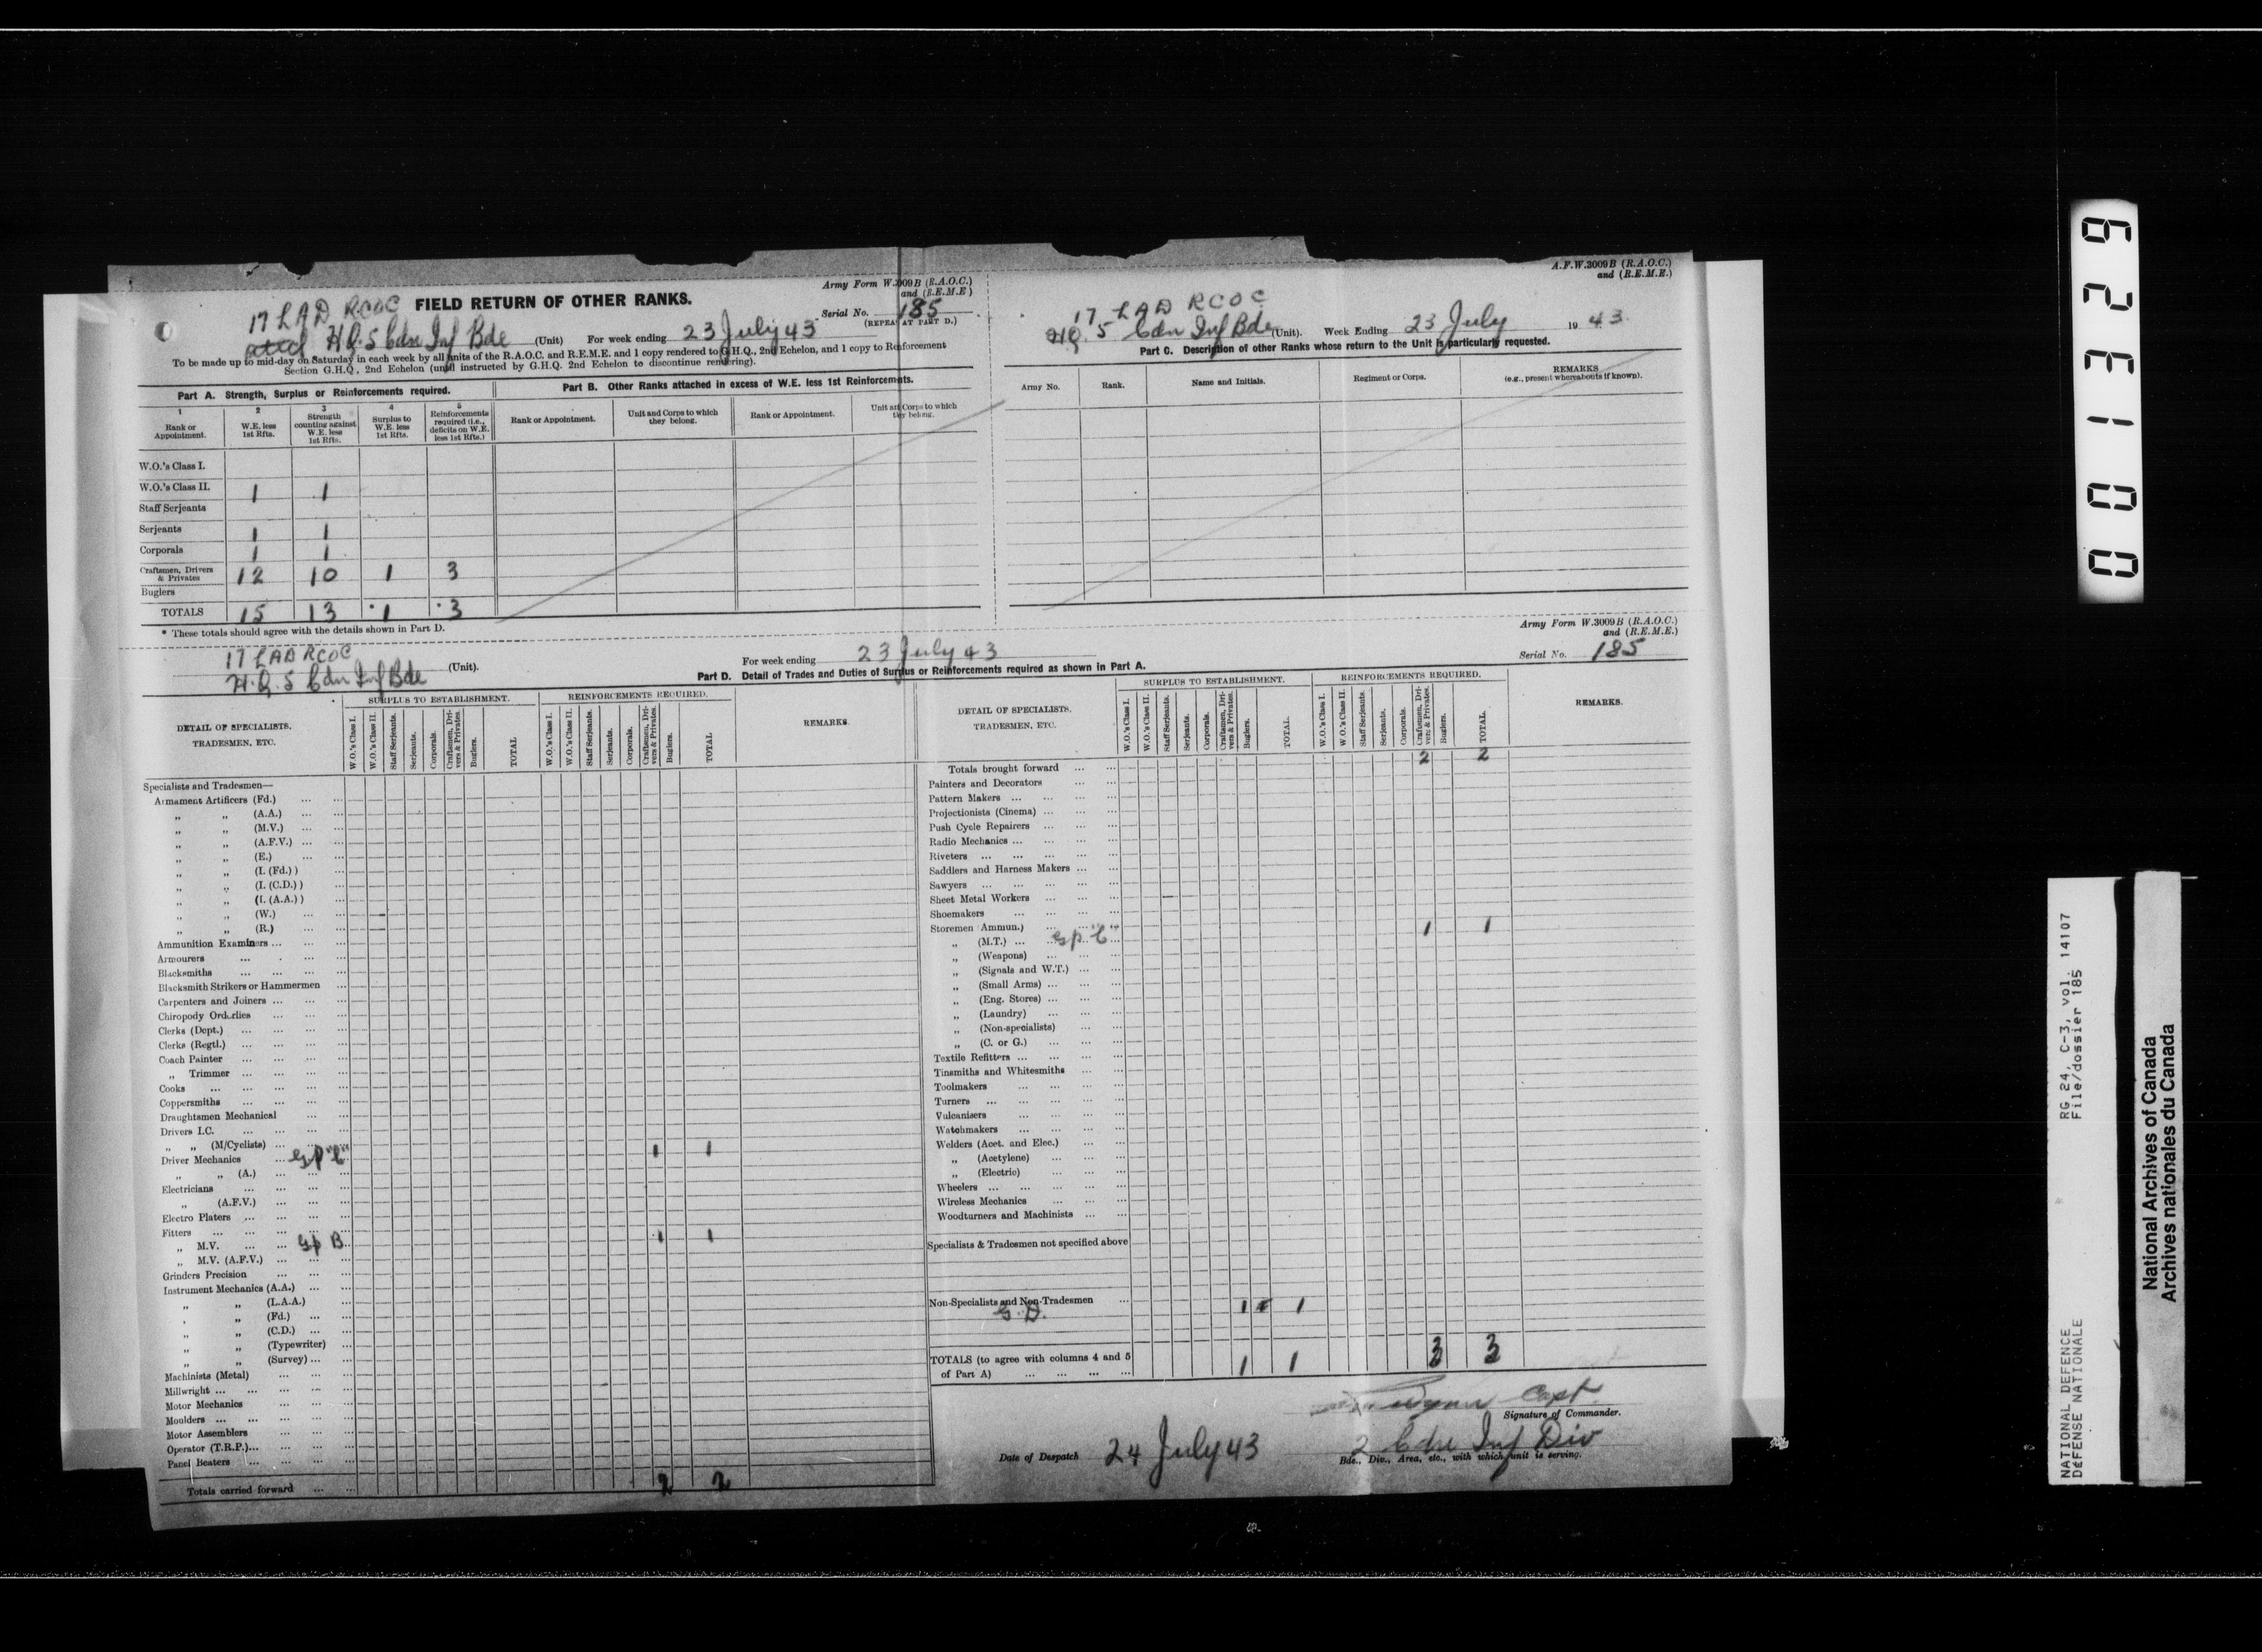 Army Form W.3009B (R.A.O.C.)
and (R.E.M.E)
17 LAD RCOC FIELD RETURN OF OTHER RANKS.
Serial No. 185
(REPEAT AT PART D.)
attd H.Q. 5 Cdn Inf Bde (Unit) For week ending 23 July 43
To be made up to mid-day on Saturday in each week by all units of the R.A.O.C. and R.E.M.E. and 1 copy rendered to G.H.Q., 2nd Echelon, and 1 copy to Reinforcement
Section G.H.Q., 2nd Echelon (until instructed by G.H.Q. 2nd Echelon to discontinue rendering).
Part A. Strength, Surplus or Reinforcements required.
Part B. Other Ranks attached in excess of W.E. less 1st Reinforcements.
1 2 3 4 5
Rank or Appointment.
W.E. less 1st Rfts.
Strength counting against W.E. less 1st Rfts.
Surplus to W.E. less 1st Rfts.
Reinforcements required (i.e., deficits on W.E. less 1st Rfts.)
Rank or Appointment.
Unit and Corps to which they belong.
Rank or Appointment.
Unit and Corps to which they belong.
W.O.'s Class I.
W.O.'s Class II. 1 1
Staff Serjeants
Serjeants 1 1
Corporals 1 1
Craftsmen, Drivers & Privates 12 10 1 3
Buglers
TOTALS 15 13 *1 *3
* These totals should agree with the details shown in Part D.
A.F.W.3009B (R.A.O.C.)
and (R.E.M.E.)
17 LAD RCOC
HQ. 5 Cdn Inf Bde (Unit). Week Ending 23 July 1943.
Part C. Description of other Ranks whose return to the Unit is particularly requested.
Army No. Rank. Name and Initials. Regiment or Corps. REMARKS
(e.g., present whereabouts if known).
Army Form W.3009B (R.A.O.C.)
and (R.E.M.E.)
Serial No. 185
17 LAD RCOC
H.Q. 5 Cdn Inf Bde (Unit).
For week ending 23 July 43
Part D. Detail of Trades and Duties of Surplus or Reinforcements required as shown in Part A.
DETAIL OF SPECIALISTS, TRADESMEN, ETC.
SURPLUS TO ESTABLISHMENT.
REINFORCEMENTS REQUIRED.
REMARKS.
W.O.'s Class I. W.O.'s Class II. Staff Serjeants. Serjeants. Corporals. Craftsmen, Drivers & Privates. Buglers. TOTAL
W.O.'s Class I. W.O.'s Class II. Staff Serjeants. Serjeants. Corporals. Craftsmen, Drivers & Privates. Buglers. TOTAL
Specialists and Tradesmen—
Armament Artificers (Fd.)
„ „ (A.A.)
„ „ (M.V.)
„ „ (A.F.V.)
„ „ (E.)
„ „ (I. (Fd.))
„ „ (I. (C.D.))
„ „ (I. (A.A.))
„ „ (W.)
„ „ (R.)
Ammunition Examiners
Armourers
Blacksmiths
Blacksmith Strikers or Hammermen
Carpenters and Joiners
Chiropody Orderlies
Clerks (Dept.)
Clerks (Regtl.)
Coach Painter
„ Trimmer
Cooks
Coppersmiths
Draughtsmen Mechanical
Drivers I.C.
„ „ (M/Cyclists)
Driver Mechanics Gp "C" 1 1
„ „ (A.)
Electricians
„ (A.F.V.)
Electro Platers
Fitters
„ M.V. Gp B 1 1
„ M.V. (A.F.V.)
Grinders Precision
Instrument Mechanics (A.A.)
„ „ (L.A.A.)
„ „ (Fd.)
„ „ (C.D.)
„ „ (Typewriter)
„ „ (Survey)
Machinists (Metal)
Millwright
Motor Mechanics
Moulders
Motor Assemblers
Operator (T.R.P.)
Panel Beaters
Totals carried forward 2 2
DETAIL OF SPECIALISTS, TRADESMEN, ETC.
SURPLUS TO ESTABLISHMENT.
REINFORCEMENTS REQUIRED.
REMARKS.
W.O.'s Class I. W.O.'s Class II. Staff Serjeants. Serjeants. Corporals. Craftsmen, Drivers & Privates. Buglers. TOTAL.
W.O.'s Class I. W.O.'s Class II. Staff Serjeants. Serjeants. Corporals. Craftsmen, Drivers & Privates. Buglers. TOTAL.
Totals brought forward 2 2
Painters and Decorators
Pattern Makers
Projectionists (Cinema)
Push Cycle Repairers
Radio Mechanics
Riveters
Saddlers and Harness Makers
Sawyers
Sheet Metal Workers
Shoemakers
Storemen Ammun.)
„ (M.T.) Gp "C" 1 1
„ (Weapons)
„ (Signals and W.T.)
„ (Small Arms)
„ (Eng. Stores)
„ (Laundry)
„ (Non-specialists)
„ (C. or G.)
Textile Refitters
Tinsmiths and Whitesmiths
Toolmakers
Turners
Vulcanisers
Watchmakers
Welders (Acet. and Elec.)
„ (Acetylene)
„ (Electric)
Wheelers
Wireless Mechanics
Woodturners and Machinists
Specialists & Tradesmen not specified above
Non-Specialists and Non-Tradesmen 1 1
G.D.
TOTALS (to agree with columns 4 and 5 of Part A) 1 1 3 3
Capt.
Signature of Commander.
Date of Despatch 24 July 43
2 Cdn Inf Div
Bde., Div., Area, etc., with which unit is serving.
001329
NATIONAL DEFENCE RG 24, C-3, vol. 14107
DÉFENSE NATIONALE File/dossier 185
National Archives of Canada
Archives nationales du Canada